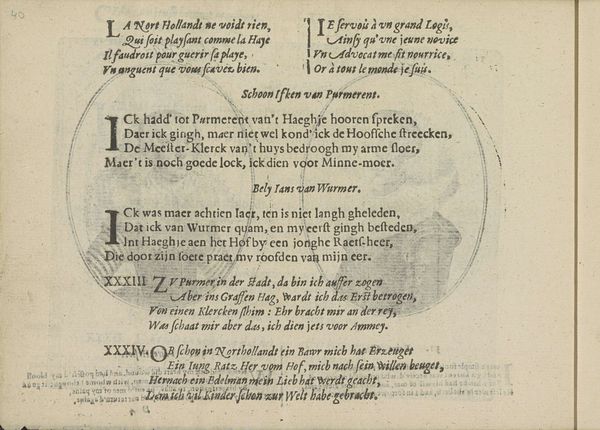 40
LA Nort Hollandt ne voidt rien,
Qui soit playsant comme la Haye
Il faudroit pour guerir sa playe,
Vn anguent que vous scavez bien.
IE servois à vn grand Logis,
Ainsy qu'vne jeune novice
Vn Advocat me fit nourrice,
Or à tout le monde je suis.
Schoon Ifken van Purmerent.
ICk hadd' tot Purmerent van't Haeghje hooren spreken,
Daer ick gingh, maer niet wel kond' ick de Hoofsche streecken,
De Meester-Klerck van't huys bedroogh my arme sloer,
Maer't is noch goede lock, ick dien voor Minne-moer.
Bely Ians van Wurmer.
ICk was maer achtien Iaer, ten is niet langh gheleden,
Dat ick van Wurmer quam, en my eerst gingh besteden,
Int Haeghje aen het Hof by een jonghe Raets-heer,
Die door zijn soete praet my roofden van mijn eer.
XXXIII ZV Purmer in der Stadt, da bin ich auffer zogen
Aber ins Graffen Hag, wardt ich das Erst betrogen,
Von einen Klercken slhim: Ehr bracht mir an der rey,
Was schaat mir aber das, ich dien jets voor Ammey.
XXXIV OB schon in Northollandt ein Bawr mich hat Erzeuget
Ein Iung Ratz Her vom Hof, mich nach sein willen beuget,
Hernach ein Edelman mein Lieb hat werdt geacht,
Dem ich vil Kinder schon zur Welt habe gebracht.